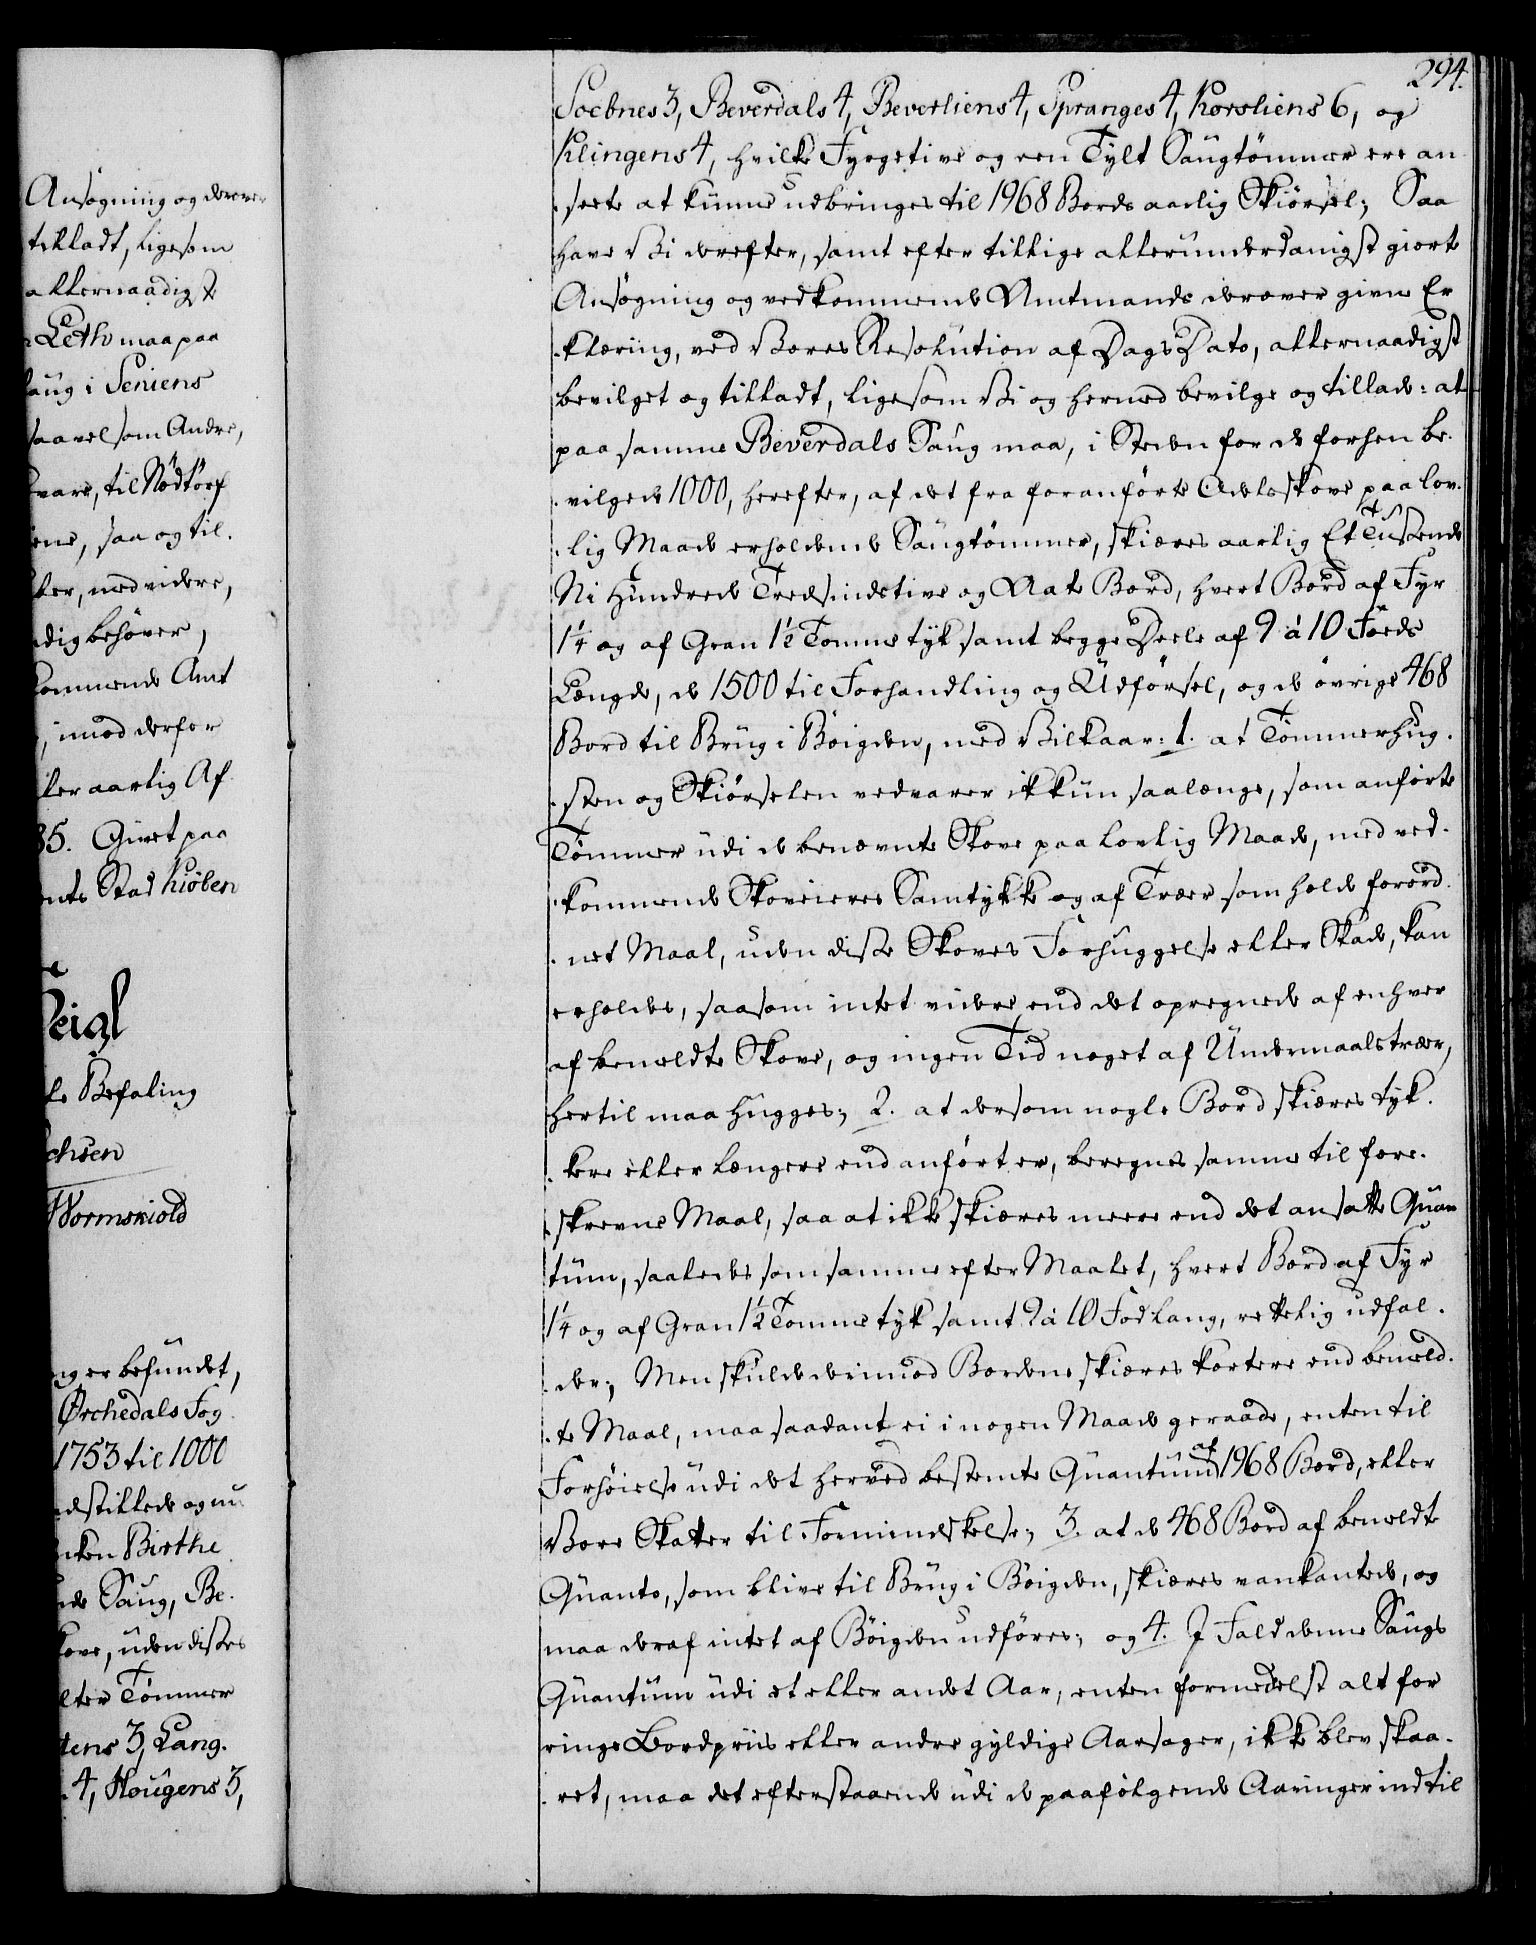 Ansøgning og derover
tilladt, ligesom
allernaadigst
Leth maa paa
Saug i Seniens
saavel som Andre,
vare, til Nødtørf
ene, saa og til.
ler, med videre,
dig behøver,
kommende Amt
, imod derfor
ler aarlig Af
85. Givet paa
ents Stad Kiöben
Seigl
le Befaling
chsen
Wormskiold
ng er befundet,
Ørchedals Fog
1753 til 1000
edstillede og nu
nken Birthe
de Saug, Be.
kove, uden disses
lter Tømmer
tens 3, Lang.
4, Hougens 3,
294.
Soebnes 3, Beverdals 4, Beverliens 4, Spranges 4, Korsliens 6, og
Klingens 4, hvilke Fyrgetive og een Tylt Saugtømmer ere an
seete at kunne udbringes til 1968 Bords aarlig Skiørsel; Saa
have Vi derefter, samt efter tillige allerunderdanigst giorte
Ansøgning og vedkommende Amtmands derover givne Er
klæring, ved Vores Resolution af Dags Dato, allernaadigst
bevilget og tilladt, ligesom Vi og hermed bevilge og tillade: at
paa samme Beverdals Saug maa, i Steden for de forhen be.
vilgede 1000, herefter, af det fra foranførte Odelsskove paa lov.
lig Maade erholdende Saugtømmer, skiæres aarlig Et Tusende
Ni Hundrede Tredsindstive og Aate Bord, hvert Bord af Fyr
1¼ og af Gran 1½ Tomme tyk samt begge Deele af 9 à 10 Foeds
Længde, de 1500 til Forhandling og Udførsel, og de øvrige 468
Bord til Brug i Bøigden, med Vilkaar: 1. at Tømmerhug.
sten og Skiørselen vedvarer ikkun saalænge, som anførte
Tømmer udi de benævnte Skove paa lovlig Maade, med ved.
kommende Skoveieres Samtykke og af Træer som holde forord.
net Maal, uden disse Skoves Forhuggelse eller Skade, kan
erholdes, saasom intet videre end det opregnede af enhver
af bemeldte Skove, og ingen Tid noget af Undermaalstræer,
hertil maa hugges; 2. at dersom nogle Bord skiæres tyk.
kere eller længere end anført er, beregnes samme til fore.
skrevne Maal, saa at ikke skiæres meere end det ansatte Quan
tum, saaledes som samme efter Maalet, hvert Bord af Fyr
1¼ og af Gran 1½ Tomme tyk samt 9 à 10 Fod lang, rettelig udfal.
der; Men skulde derimod Bordene skiæres kortere end bemeld.
te Maal, maa saadant ei i nogen Maade geraade, enten til
Forhøielse udi det herved bestemte Quantum af 1968 Bord, eller
Vore Skatter til Formindskelse; 3. at de 468 Bord af bemeldte
Quanto, som blive til Brug i Bøigden, skiæres vankantede, og
maa deraf intet af Bøigden udføres; og 4. I Fald denne Saugs
Quantum udi et eller andet Aar, enten formedelst alt for
ringe Bordpriis eller andre gyldige Aarsager, ikke blev skaa.
ret, maa det efterstaaende udi de paafølgende Aaringer indtil